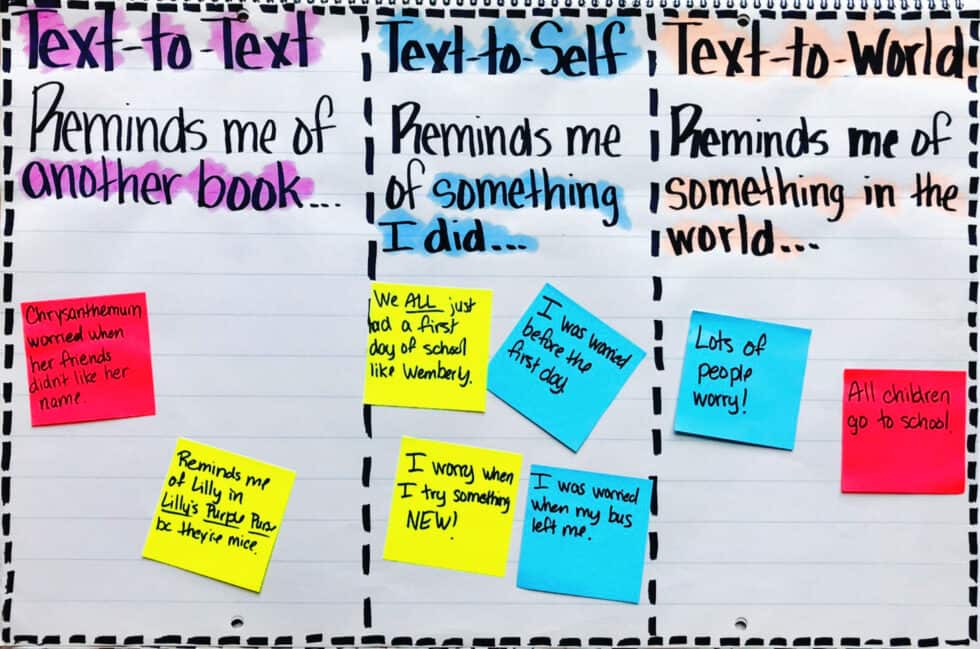 Text-to-Text
Reminds me of
another book...
Chrysanthemum
worried when
her friends
didnt like her
name.
Reminds me
of Lilly in
Lilly's Purple Purse
bc they're mice.
Text-to-Self
Reminds me
of something
I did...
We ALL just
had a first
day of school
like Wemberly.
I was worried
before the
first day.
I worry when
I try something
NEW!
I was worried
when my bus
left me.
Text-to-World
Reminds me of
something in the
world...
Lots of
people
worry!
All children
go to school.